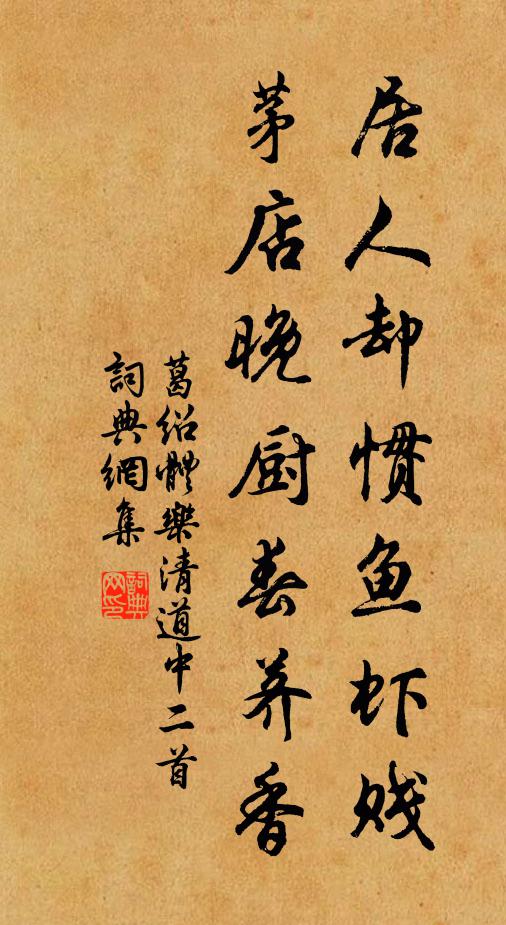 居人却惯鱼虾贱
茅店晚厨春荠香
葛绍體樂清道中二首
詞典網集
詞典网印